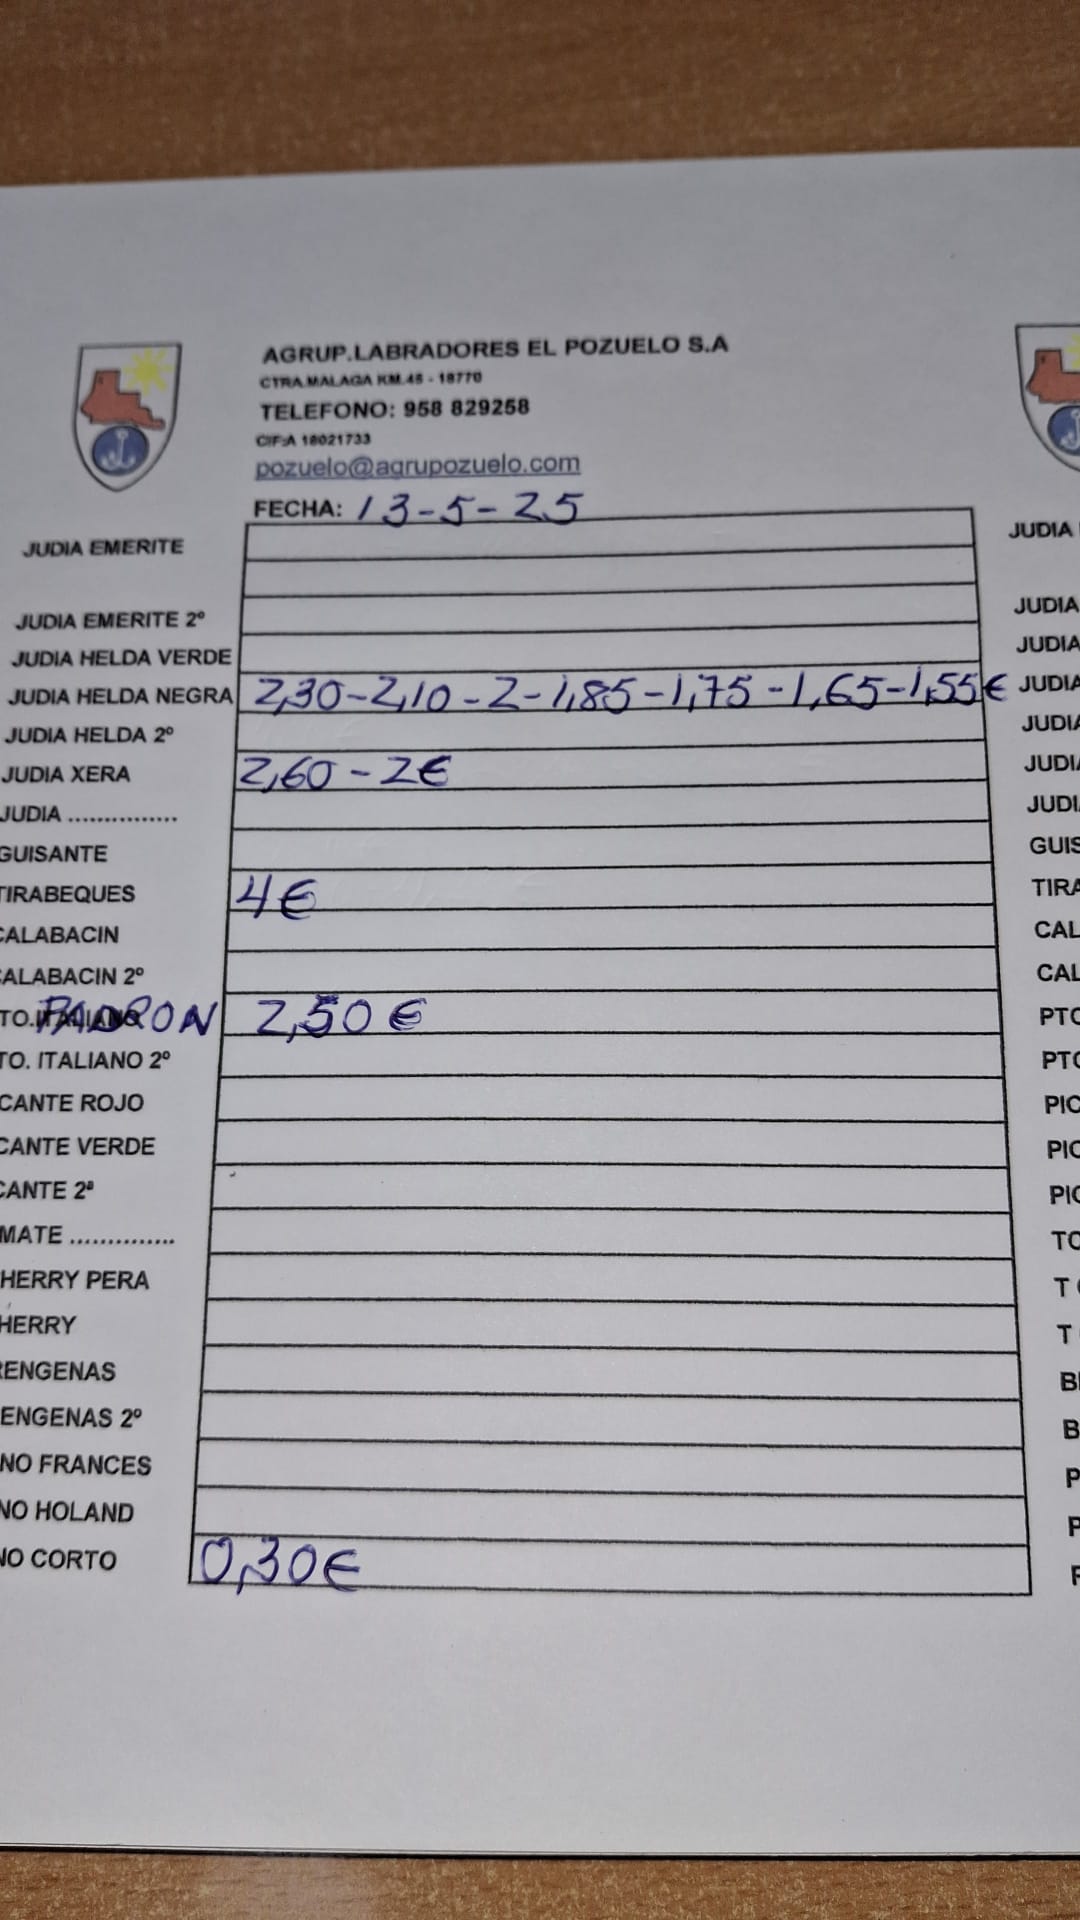 AGRUP.LABRADORES EL POZUELO S.A
CTRA.MALAGA KM.45 - 18770
TELEFONO: 958 829258
CIF:A 18021733
pozuelo@agrupozuelo.com
FECHA: 13-5-25
JUDIA EMERITE JUDIA
JUDIA EMERITE 2º JUDIA
JUDIA HELDA VERDE JUDIA
JUDIA HELDA NEGRA 2,30-2,10-2-1,85-1,75-1,65-1,55€ JUDIA
JUDIA HELDA 2º JUDIA
JUDIA XERA 2,60-2€ JUDI
JUDIA ............... JUDI
GUISANTE GUIS
TIRABEQUES 4€ TIRA
CALABACIN CAL
CALABACIN 2º CAL
TO. ITALIANO PADRON 2,50€ PTO
TO. ITALIANO 2º PTO
CANTE ROJO PIC
CANTE VERDE PIC
CANTE 2ª PIC
MATE .............. TO
HERRY PERA T
HERRY T
RENGENAS B
ENGENAS 2º B
NO FRANCES P
NO HOLAND P
NO CORTO 0,30€